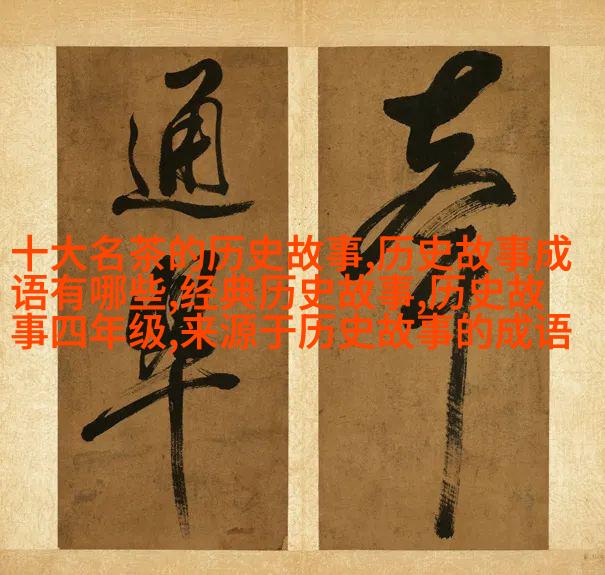 通
十大名茶的历史故事,历史故事成
语有哪些,经典历史故事,历史故
事四年级,来源于历史故事的成语